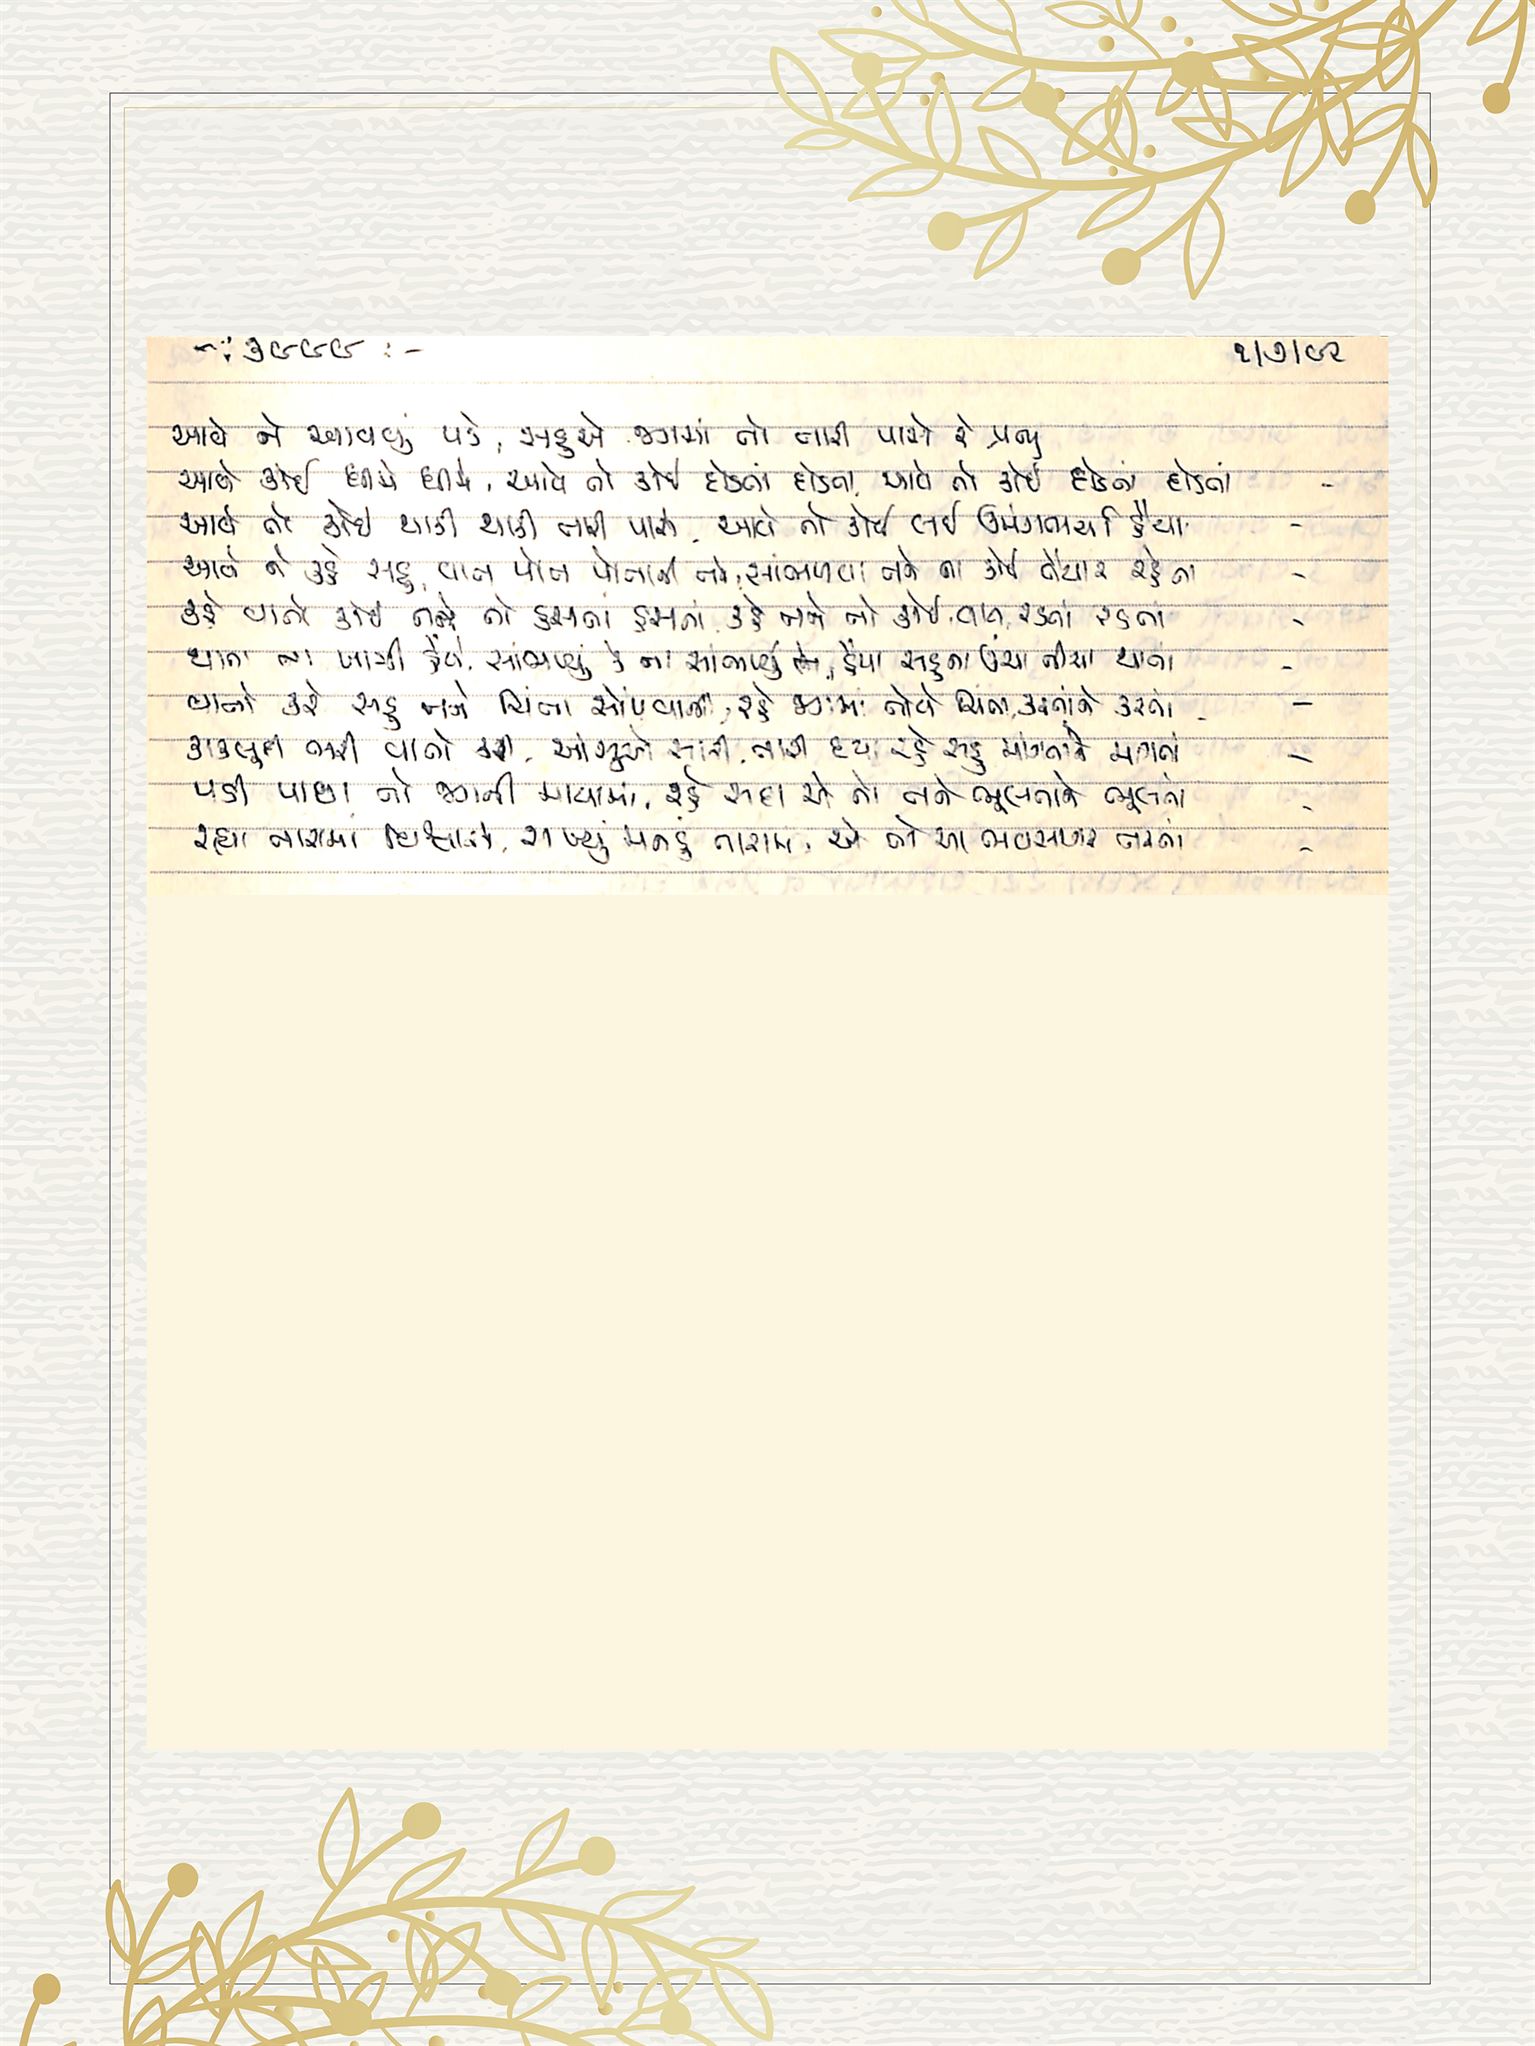 -: ૩૯૯૯ :-
૧/૭/૯૨
આવે ને આવવું પડે, સહુએ જગમાં તો તારી પાસે રે પ્રભુ
આવે કોઈ ધીમે ધીમે, આવે તો કોઈ દોડતાં દોડતાં, આવે તો કોઈ દોડતાં દોડતાં -
આવે તો કોઈ થાકી થાકી તારી પાસે, આવે તો કોઈ લઈ ઉમંગભર્યા હૈયા -
આવે ને કહે સહુ, વાત પોત પોતાની તને, સાંભળવા તને ના કોઈ તૈયાર રહેતા -
કહે વાતો કોઈ તને તો હસતાં હસતાં, કહે તને તો કોઈ વાત, રડતાં રડતાં -
થાતા ના ખાલી હૈયે, સાંભળ્યું કે ના સાંભળ્યું તેં, હૈયા સહુના ઉંચા નીચા થાતાં -
વાતો કરે સહુ તને ચિંતા સોંપવાની, રહે જગમાં તોયે ચિંતા, કરતાંને કરતાં -
કાકલૂદી ભરી વાતો કરી, આંસુઓ સારી, તારી દયા રહે સહુ માંગતાને માંગતાં -
પડી પાછા તો જગની માયામાં, રહે સદા એ તો તને ભૂલતાને ભૂલતાં -
રહ્યા તારામાં વિશ્વાસે, રાખ્યું મનડું તારામાં, એ તો આ ભવસાગર તરતાં -